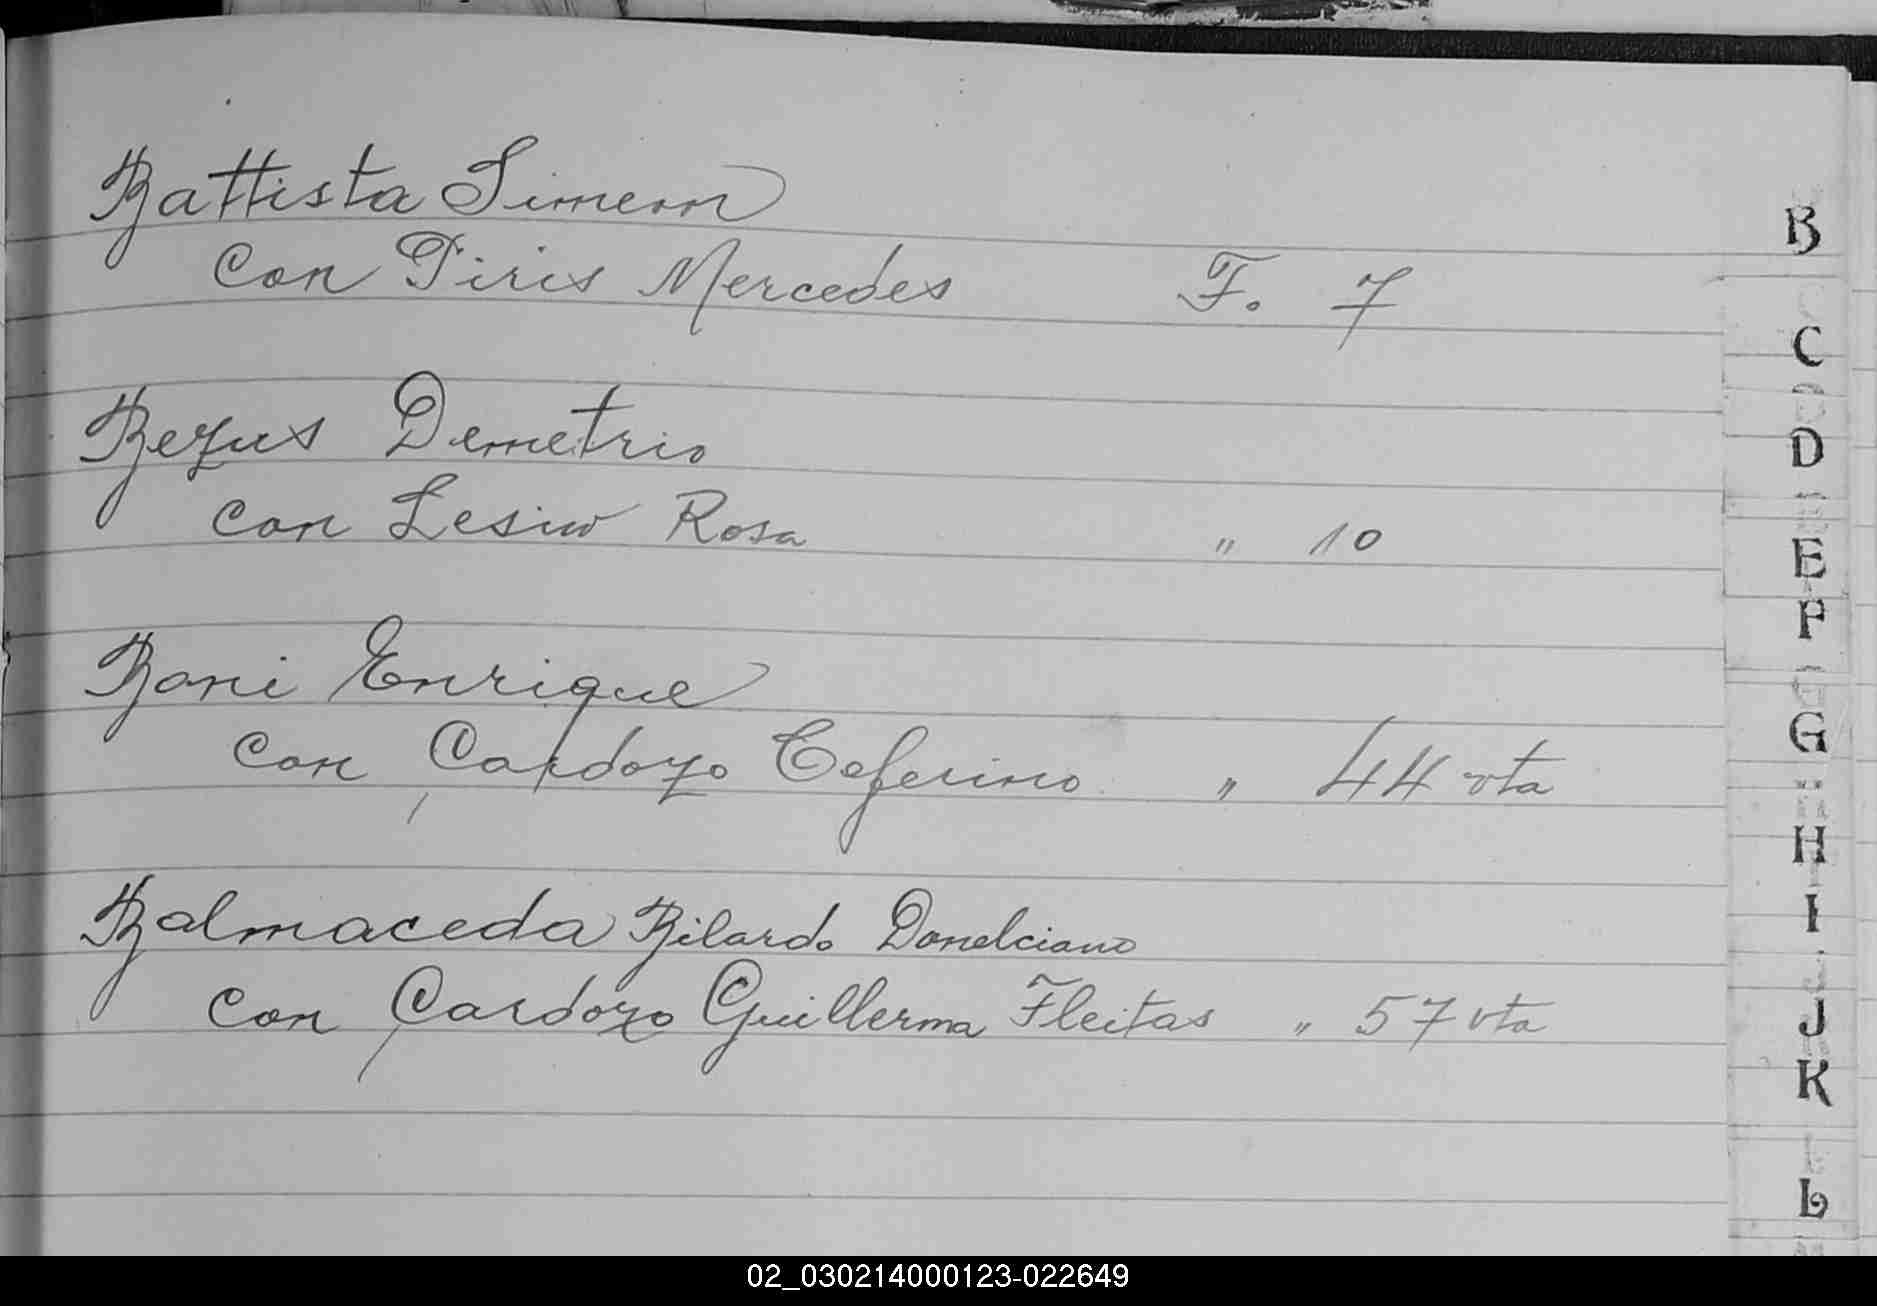 Battista Simeon
Con Piris Mercedes F. 7
Bezus Demetrio
con Lesiw Rosa " 10
Boni Enrique
con Cardozo Ceferino " 44 vta
Balmaceda Bilardo Donelciano
con Cardozo Guillerma Fleitas " 57 vta
B
C
D
E
F
G
H
I
J
K
L
02_030214000123-022649